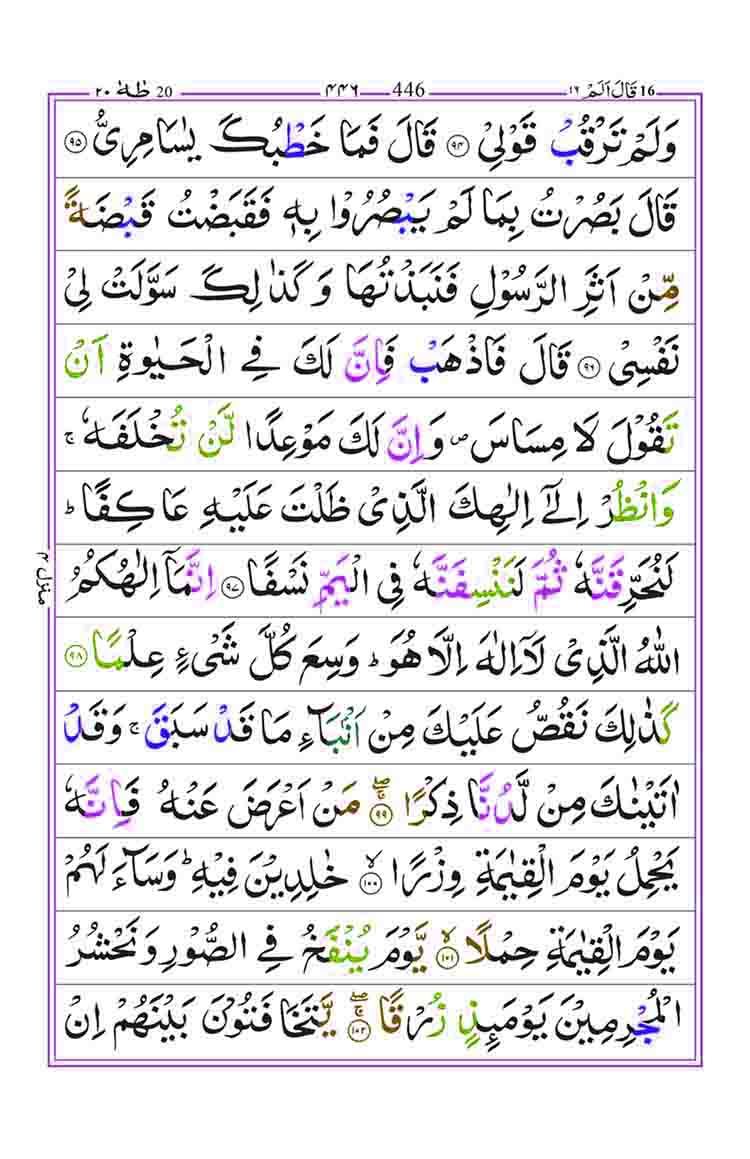 16 قَالَ اَلَمْ ١٦ 446 ٤٤٦ 20 طٰهٰ ٢٠
وَلَمْ تَرْقُبْ قَوْلِیْ ﴿۹۴﴾ قَالَ فَمَا خَطْبُكَ یٰسَامِرِیُّ ﴿۹۵﴾
قَالَ بَصُرْتُ بِمَا لَمْ یَبْصُرُوْا بِهٖ فَقَبَضْتُ قَبْضَةً
مِّنْ اَثَرِ الرَّسُوْلِ فَنَبَذْتُهَا وَكَذٰلِكَ سَوَّلَتْ لِیْ
نَفْسِیْ ﴿۹۶﴾ قَالَ فَاذْهَبْ فَاِنَّ لَكَ فِی الْحَیٰوةِ اَنْ
تَقُوْلَ لَا مِسَاسَ ۪ وَاِنَّ لَكَ مَوْعِدًا لَّنْ تُخْلَفَهٗ ۚ
وَانْظُرْ اِلٰۤی اِلٰهِكَ الَّذِیْ ظَلْتَ عَلَیْهِ عَاكِفًا ؕ
لَنُحَرِّقَنَّهٗ ثُمَّ لَنَنْسِفَنَّهٗ فِی الْیَمِّ نَسْفًا ﴿۹۷﴾ اِنَّمَاۤ اِلٰهُكُمُ
اللّٰهُ الَّذِیْ لَاۤ اِلٰهَ اِلَّا هُوَ ؕ وَسِعَ كُلَّ شَیْءٍ عِلْمًا ﴿۹۸﴾
كَذٰلِكَ نَقُصُّ عَلَیْكَ مِنْ اَنْۢبَآءِ مَا قَدْ سَبَقَ ۚ وَقَدْ
اٰتَیْنٰكَ مِنْ لَّدُنَّا ذِكْرًا ﴿۹۹﴾ۖۚ مَنْ اَعْرَضَ عَنْهُ فَاِنَّهٗ
یَحْمِلُ یَوْمَ الْقِیٰمَةِ وِزْرًا ﴿۱۰۰﴾ۙ خٰلِدِیْنَ فِیْهِ ؕ وَسَآءَ لَهُمْ
یَوْمَ الْقِیٰمَةِ حِمْلًا ﴿۱۰۱﴾ۙ یَّوْمَ یُنْفَخُ فِی الصُّوْرِ وَنَحْشُرُ
الْمُجْرِمِیْنَ یَوْمَىِٕذٍ زُرْقًا ﴿۱۰۲﴾ۖۚ یَّتَخَافَتُوْنَ بَیْنَهُمْ اِنْ
منزل ۴